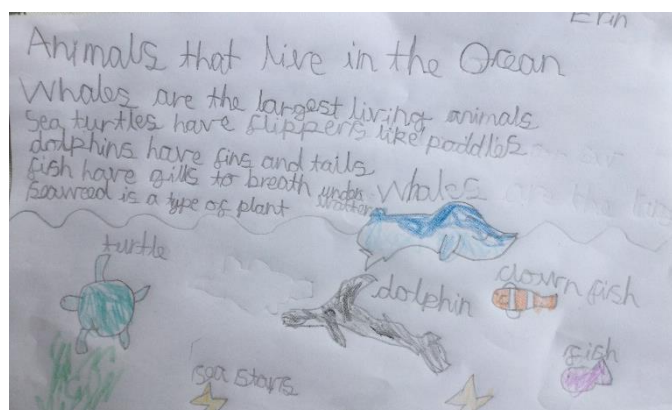 Erin
Animals that live in the Ocean
Whales are the largest living animals
Sea turtles have flippers like paddles
dolphins have fins and tails
fish have gills to breath under
Seaweed is a type of plant
Whales
turtle
dolphin
clown fish
fish
sea stars